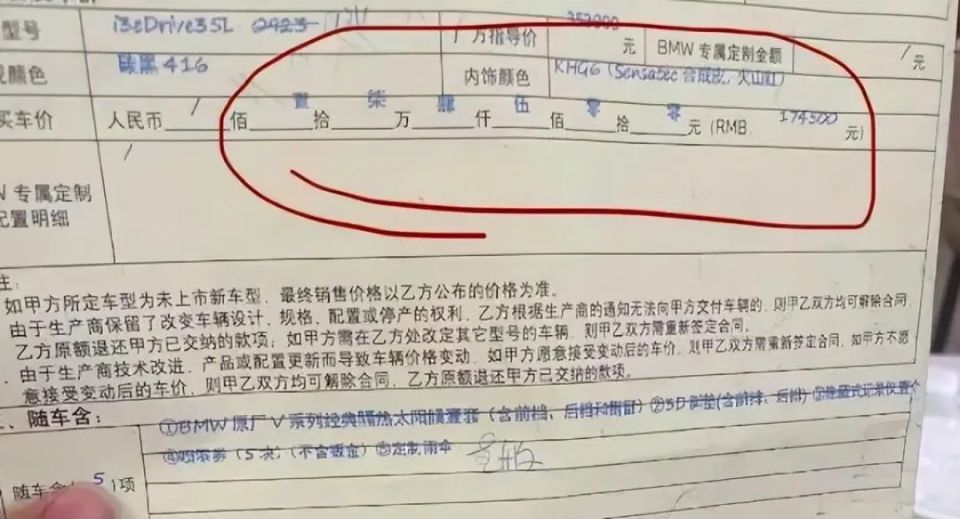 型号 i3eDrive35L 2023 厂方指导价 353000 元 BMW 专属定制金额 / 元
观颜色 碳黑416 内饰颜色 KHG6 (Sensatec 合成皮, 火山红)
买车价 人民币 / 佰 壹 拾 柒 万 肆 仟 伍 佰 零 拾 零 元 (RMB 174500 元)
W 专属定制 /
配置明细
注:
如甲方所定车型为未上市新车型，最终销售价格以乙方公布的价格为准。
由于生产商保留了改变车辆设计、规格、配置或停产的权利，乙方根据生产商的通知无法向甲方交付车辆的，则甲乙双方均可解除合同，
乙方原额退还甲方已交纳的款项；如甲方需在乙方处改定其它型号的车辆，则甲乙双方需重新签定合同。
由于生产商技术改进、产品或配置更新而导致车辆价格变动，如甲方愿意接受变动后的车价，则甲乙双方需重新签定合同，如甲方不愿
意接受变动后的车价，则甲乙双方均可解除合同，乙方原额退还甲方已交纳的款项。
三、随车含：
①BMW 原厂V系列经典隔热太阳膜壹套（含前档、后档和窗留）②5D脚垫(含前绊、后绊)
（5次，(不含钣金)⑤定制雨伞
随车含( 5 )项